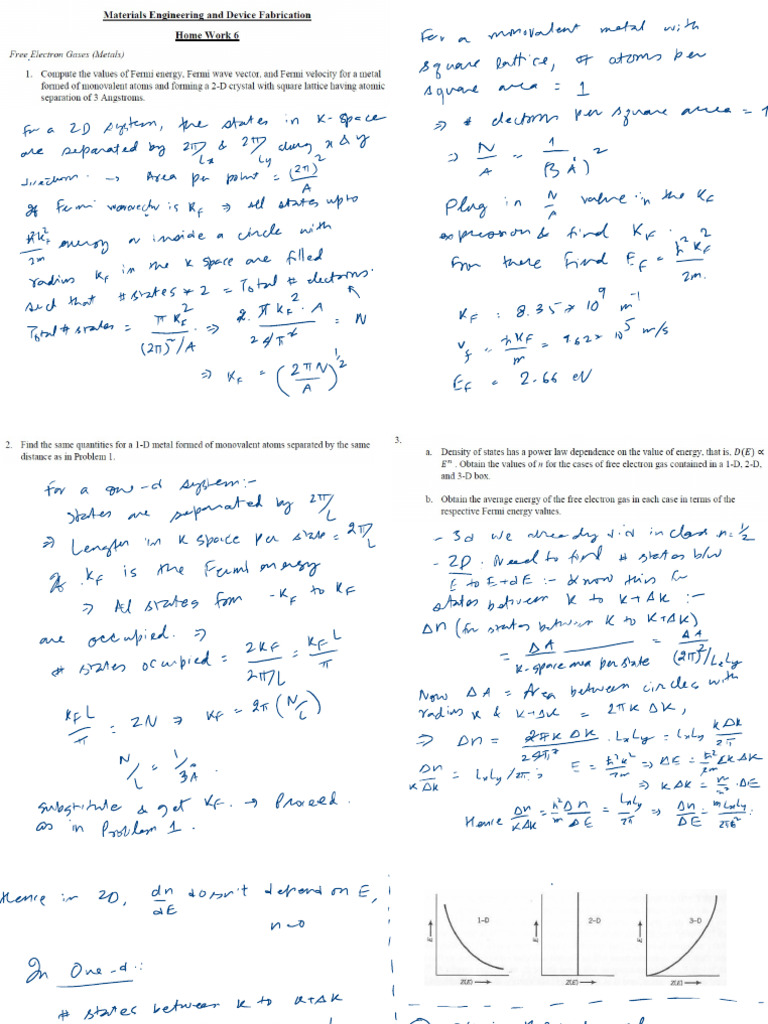 Materials Engineering and Device Fabrication
Home Work 6
Free Electron Gases (Metals)
1. Compute the values of Fermi energy, Fermi wave vector, and Fermi velocity for a metal
formed of monovalent atoms and forming a 2-D crystal with square lattice having atomic
separation of 3 Angstroms.
For a 2D system, the states in K-space
are separated by 2π/Lx & 2π/Ly along x & y
direction. → Area per point = (2π)²/A
If Fermi wavevector is KF ⇒ All states upto
ħkF²/2m energy or inside a circle with
radius KF in the K space are filled
such that # states * 2 = Total # electrons.
Total # states = πKF²/((2π)²/A) ⇒ 2·πKF²·A/24π² = N
⇒ KF = (2πN/A)^1/2
For a monovalent metal with
square lattice, # atoms per
square area = 1
⇒ # electrons per square area = 1
⇒ N/A = 1/(3 Å)²
Plug in N/A value in the KF
expression & find KF.
From there find EF = ħ²KF²/2m.
KF = 8.35 * 10⁹ m⁻¹
vF = ħKF/m = 9.62 * 10⁵ m/s
EF = 2.66 eV
2. Find the same quantities for a 1-D metal formed of monovalent atoms separated by the same
distance as in Problem 1.
For a one-d system:-
States are separated by 2π/L
⇒ Length in K space per state = 2π/L
If KF is the Fermi energy
⇒ All states from -KF to KF
are occupied. ⇒
# states occupied = 2KF/2π/L = KFL/π
KFL/π = 2N ⇒ KF = 2π(N/L)
N/L = 1/3Å
substitute & get KF. → Proceed
as in Problem 1.
3.
a. Density of states has a power law dependence on the value of energy, that is, D(E) ∝
Eⁿ. Obtain the values of n for the cases of free electron gas contained in a 1-D, 2-D,
and 3-D box.
b. Obtain the average energy of the free electron gas in each case in terms of the
respective Fermi energy values.
- 3d we already did in class n=1/2
- 2D. Need to find # states b/w
E to E+dE :- know this for
states between K to K+ΔK :-
Δn (for states between K to K+ΔK)
= ΔA/K-space area per state = ΔA/(2π)²/LxLy
Now ΔA = Area between circles with
radius K & K+ΔK = 2πKΔK,
⇒ Δn = 2πKΔK/24π² · LxLy = LxLy KΔK/2π
Δn/KΔK = LxLy/2π; E = ħ²K²/2m ⇒ ΔE = ħ²/2m 2KΔK
⇒ KΔK = m/ħ² · ΔE
Hence Δn/KΔK = ħ²Δn/mΔE = LxLy/2π ⇒ Δn/ΔE = mLxLy/2πħ²
Hence in 2D, dn/dE doesn't depend on E,
n=0
In One-d:
# states between K to K+ΔK
1-D
2-D
3-D
E
E
E
D(E)
D(E)
D(E)